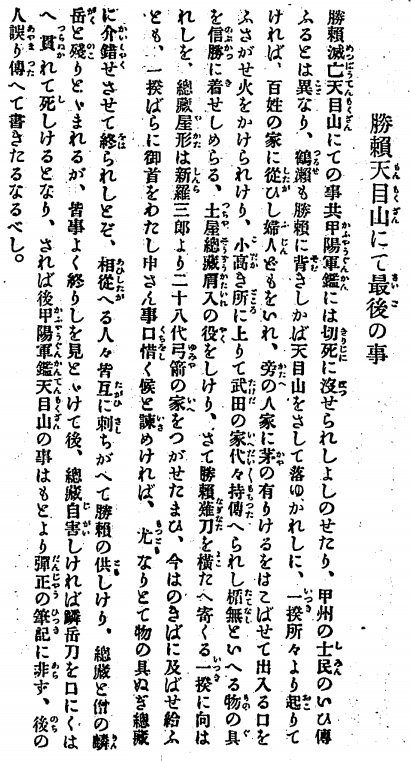 勝賴天目山にて最後の事
勝賴滅亡天目山にての事共甲陽軍鑑には切死に沒せられしよしのせたり、甲州の士民のいひ傳
ふるとは異なり、鶴瀨も勝賴に背きしかば天目山をさして落ゆかれしに、一揆所々より起りて
ければ、百姓の家に從ひし婦人どもをいれ、旁の人家に茅の有りけるをはこばせて出入る口を
ふさがせ火をかけられけり、小高き所に上りて武田の家代々持傳へられし楯無といへる物の具
を信勝に着せしめらる、土屋總藏肩入の役をしけり、さて勝賴薙刀を橫たへ寄くる一揆に向は
れしを、總藏屋形は新羅三郎より二十八代弓箭の家をつがせたまひ、今はのきばに及ばせ給ふ
とも、一揆ばらに御首をわたし申さん事口惜く候と諫めければ、尤なりとて物の具ぬぎ總藏
に介錯せさせて終られしとぞ、相從へる人々皆互に刺ちがへて勝賴の供しけり、總藏と僧の麟
岳と殘りとゞまれるが、皆事よく終りしを見とゞけて後、總藏自害しければ麟岳刀を口にくは
へ貫れて死しけるとなり、されば後甲陽軍鑑天目山の事はもとより彈正の筆記に非ず、後の
人誤り傳へて書きたるなるべし。